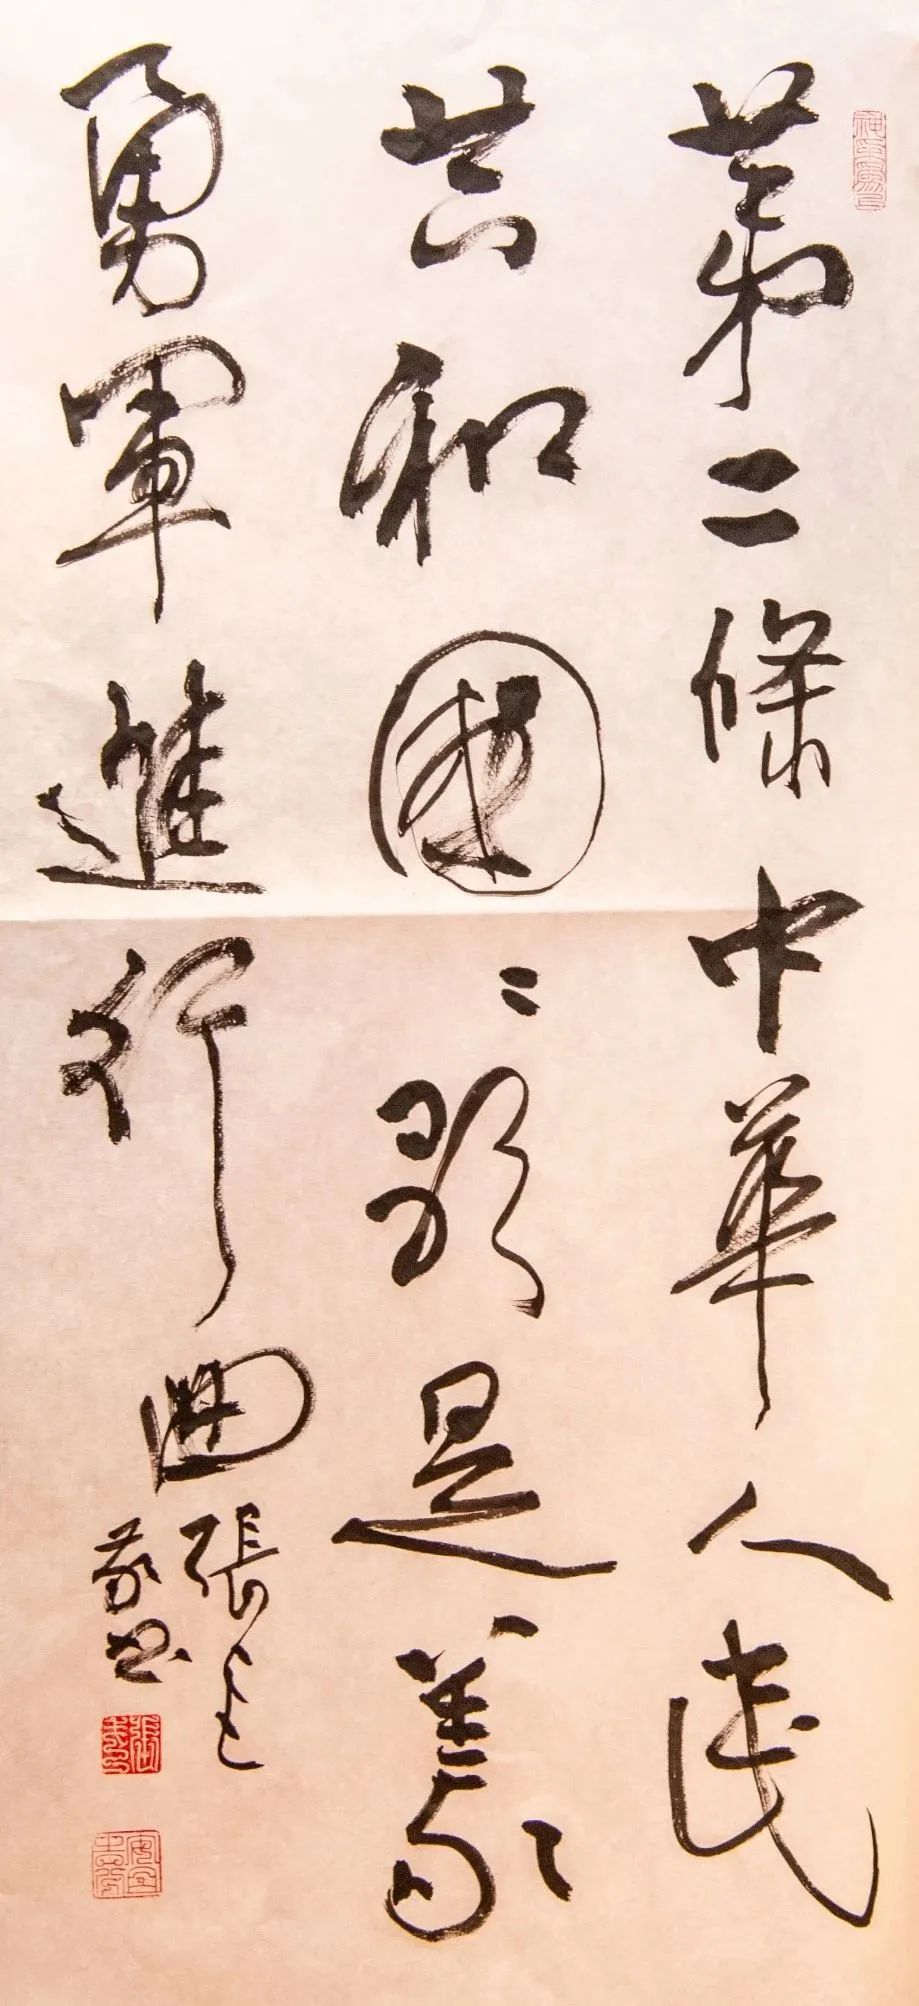 第二條中華人民
共和國〻歌是義
勇軍進行曲
張
敬書